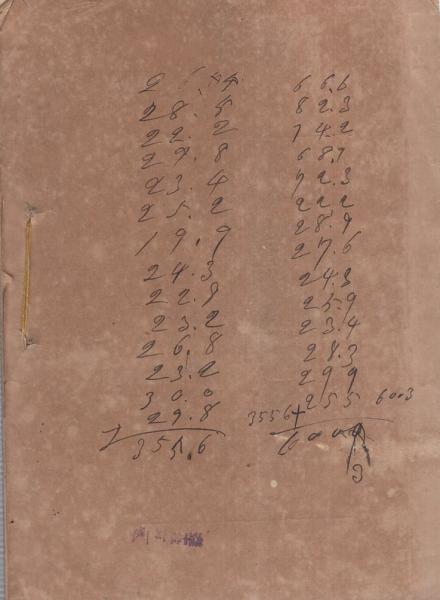 28.5
22.2
27.8
23.4
25.2
19.9
24.3
22.9
23.2
26.8
23.2
30.0
29.8
355.6
66.6
82.3
74.2
68.7
72.3
22.2
28.9
27.6
24.3
25.9
23.4
28.3
29.9
25.5
6003
3556+
6009
3